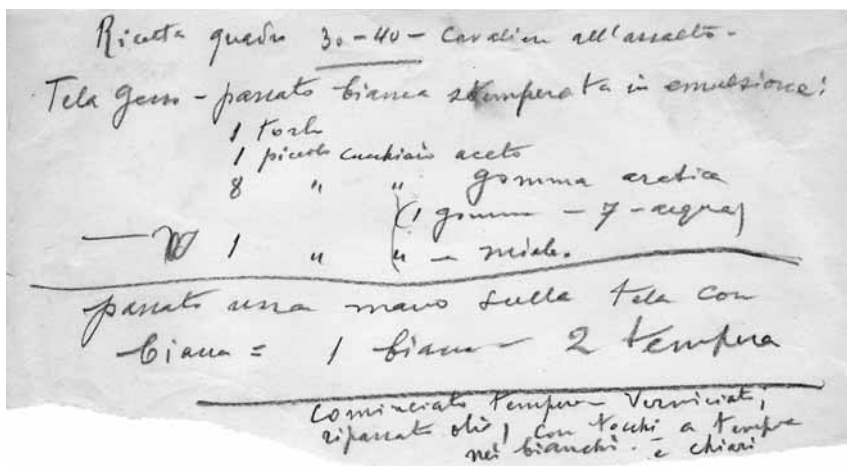 Ricetta quadro 30-40- Cavaliere all'assalto-
Tela Gesso - passato bianca stemperata in emulsione:
1 torlo
1 piccolo cucchiaio aceto
8 " " gomma arabica
(1 gomma - 7 - acqua)
1 " " - miele.
passato una mano sulla tela con
biacca = 1 biacca - 2 tempera
Cominciato tempera - Verniciato,
ripassato olio, con tocchi a tempera
nei bianchi - e chiari